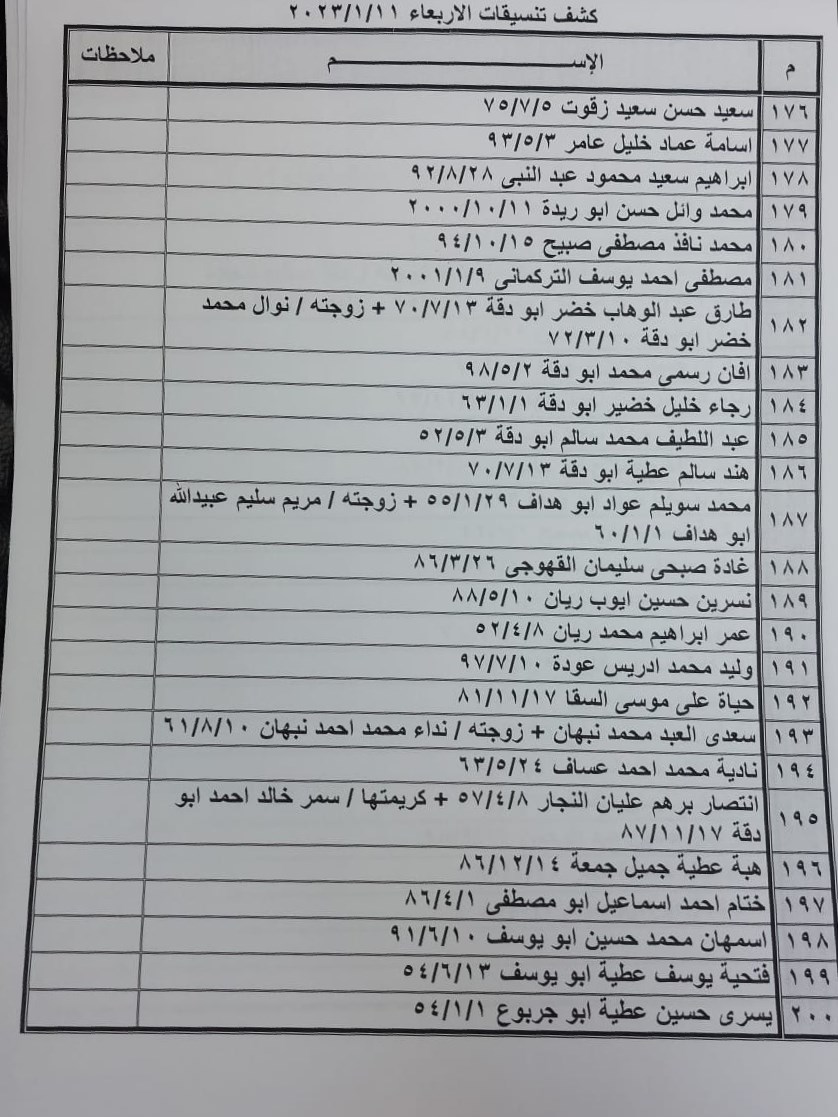 كشف تنسيقات الاربعاء ٢٠٢٣/١/١١
م الإســـــم ملاحظات
١٧٦ سعيد حسن سعيد زقوت ٧٥/٧/٥
١٧٧ اسامة عماد خليل عامر ٩٣/٥/٣
١٧٨ ابراهيم سعيد محمود عبد النبى ٩٢/٨/٢٨
١٧٩ محمد وائل حسن ابو ريدة ٢٠٠٠/١٠/١١
١٨٠ محمد نافذ مصطفى صبيح ٩٤/١٠/١٥
١٨١ مصطفى احمد يوسف التركمانى ٢٠٠١/١/٩
١٨٢ طارق عبد الوهاب خضر ابو دقة ٧٠/٧/١٣ + زوجته / نوال محمد
خضر ابو دقة ٧٢/٣/١٠
١٨٣ افان رسمى محمد ابو دقة ٩٨/٥/٢
١٨٤ رجاء خليل خضير ابو دقة ٦٣/١/١
١٨٥ عبد اللطيف محمد سالم ابو دقة ٥٢/٥/٣
١٨٦ هند سالم عطية ابو دقة ٧٠/٧/١٣
١٨٧ محمد سويلم عواد ابو هداف ٥٥/١/٢٩ + زوجته / مريم سليم عبيدالله
ابو هداف ٦٠/١/١
١٨٨ غادة صبحى سليمان القهوجى ٨٦/٣/٢٦
١٨٩ نسرين حسين ايوب ريان ٨٨/٥/١٠
١٩٠ عمر ابراهيم محمد ريان ٥٢/٤/٨
١٩١ وليد محمد ادريس عودة ٩٧/٧/١٠
١٩٢ حياة على موسى السقا ٨١/١١/١٧
١٩٣ سعدى العبد محمد نبهان + زوجته / نداء محمد احمد نبهان ٦١/٨/١٠
١٩٤ نادية محمد احمد عساف ٦٣/٥/٢٤
١٩٥ انتصار برهم عليان النجار ٥٧/٤/٨ + كريمتها / سمر خالد احمد ابو
دقة ٨٧/١١/١٧
١٩٦ هبة عطية جميل جمعة ٨٦/١٢/١٤
١٩٧ ختام احمد اسماعيل ابو مصطفى ٨٦/٤/١
١٩٨ اسمهان محمد حسين ابو يوسف ٩١/٦/١٠
١٩٩ فتحية يوسف عطية ابو يوسف ٥٤/٦/١٣
٢٠٠ يسرى حسين عطية ابو جربوع ٥٤/١/١